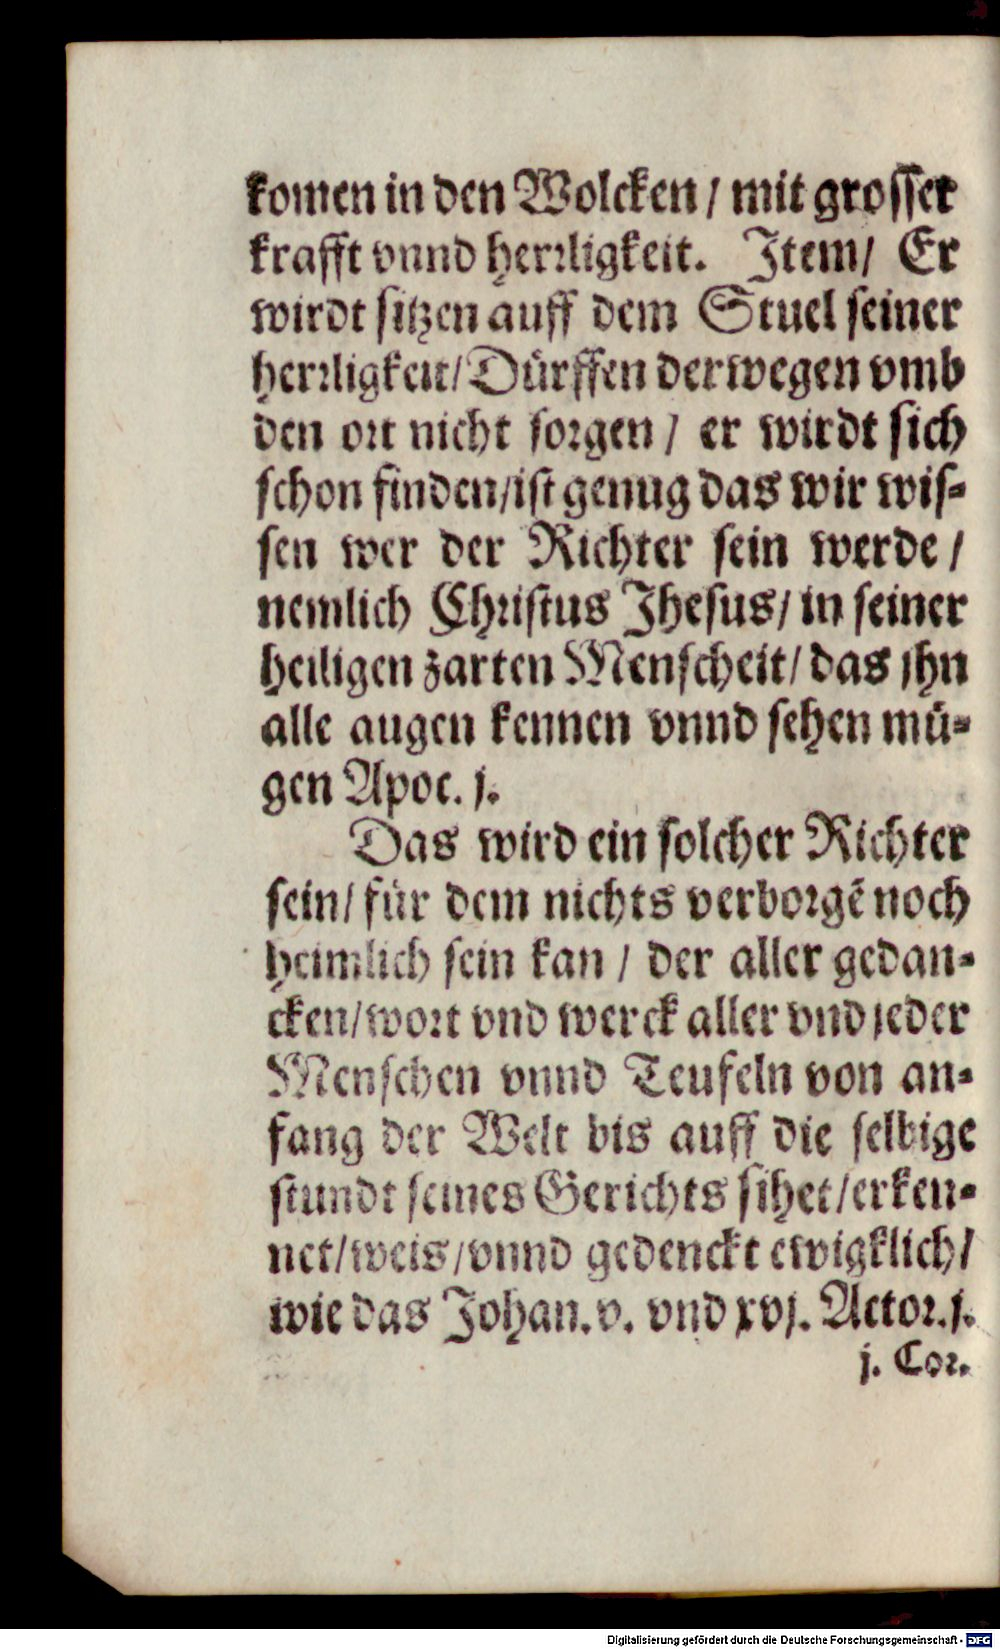 komen in den Wolcken / mit grosser
krafft vnnd herrligkeit. Item/ Er
wirdt sitzen auff dem Stuel seiner
herrligkeit/ Dürffen derwegen vmb
den ort nicht sorgen / er wirdt sich
schon finden/ist genug das wir wis-
sen wer der Richter sein werde /
nemlich Christus Jhesus/ in seiner
heiligen zarten Menscheit/ das jhn
alle augen kennen vnnd sehen mü-
gen Apoc. j.
Das wird ein solcher Richter
sein/ für dem nichts verborgẽ noch
heimlich sein kan / der aller gedan-
cken/wort vnd werck aller vnd jeder
Menschen vnnd Teufeln von an-
fang der Welt bis auff die selbige
stundt seines Gerichts sihet/erken-
net/weis/vnnd gedenckt ewigklich/
wie das Johan. v. vnd xvj. Actor. j.
j. Cor.
Digitalisierung gefördert durch die Deutsche Forschungsgemeinschaft - DFG